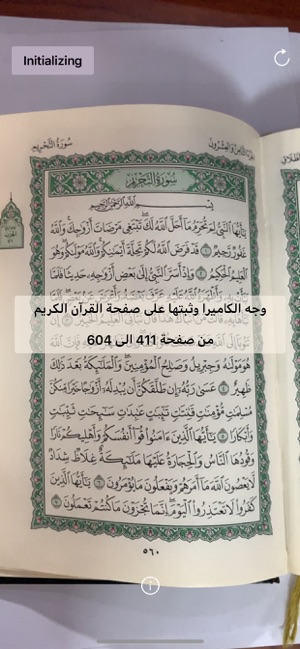 Initializing
سورة التحريم
الجزء الثامن والعشرون
سورة التحريم
بسم الله الرحمن الرحيم
يَٰٓأَيُّهَا ٱلنَّبِيُّ لِمَ تُحَرِّمُ مَآ أَحَلَّ ٱللَّهُ لَكَۖ تَبۡتَغِي مَرۡضَاتَ أَزۡوَٰجِكَۚ وَٱللَّهُ
غَفُورٞ رَّحِيمٞ ١ قَدۡ فَرَضَ ٱللَّهُ لَكُمۡ تَحِلَّةَ أَيۡمَٰنِكُمۡۚ وَٱللَّهُ مَوۡلَىٰكُمۡۖ وَهُوَ
ٱلۡعَلِيمُ ٱلۡحَكِيمُ ٢ وَإِذۡ أَسَرَّ ٱلنَّبِيُّ إِلَىٰ بَعۡضِ أَزۡوَٰجِهِۦ حَدِيثٗا فَلَمَّا
وجه الكاميرا وثبتها على صفحة القرآن الكريم
من صفحة 411 الى 604
هُوَ مَوۡلَىٰهُ وَجِبۡرِيلُ وَصَٰلِحُ ٱلۡمُؤۡمِنِينَۖ وَٱلۡمَلَٰٓئِكَةُ بَعۡدَ ذَٰلِكَ
ظَهِيرٌ ٤ عَسَىٰ رَبُّهُۥٓ إِن طَلَّقَكُنَّ أَن يُبۡدِلَهُۥٓ أَزۡوَٰجًا خَيۡرٗا مِّنكُنَّ
مُسۡلِمَٰتٖ مُّؤۡمِنَٰتٖ قَٰنِتَٰتٖ تَٰٓئِبَٰتٍ عَٰبِدَٰتٖ سَٰٓئِحَٰتٖ ثَيِّبَٰتٖ
وَأَبۡكَارٗا ٥ يَٰٓأَيُّهَا ٱلَّذِينَ ءَامَنُواْ قُوٓاْ أَنفُسَكُمۡ وَأَهۡلِيكُمۡ نَارٗا
وَقُودُهَا ٱلنَّاسُ وَٱلۡحِجَارَةُ عَلَيۡهَا مَلَٰٓئِكَةٌ غِلَاظٞ شِدَادٞ
لَّا يَعۡصُونَ ٱللَّهَ مَآ أَمَرَهُمۡ وَيَفۡعَلُونَ مَا يُؤۡمَرُونَ ٦ يَٰٓأَيُّهَا ٱلَّذِينَ
كَفَرُواْ لَا تَعۡتَذِرُواْ ٱلۡيَوۡمَۖ إِنَّمَا تُجۡزَوۡنَ مَا كُنتُمۡ تَعۡمَلُونَ ٧
٥٦٠